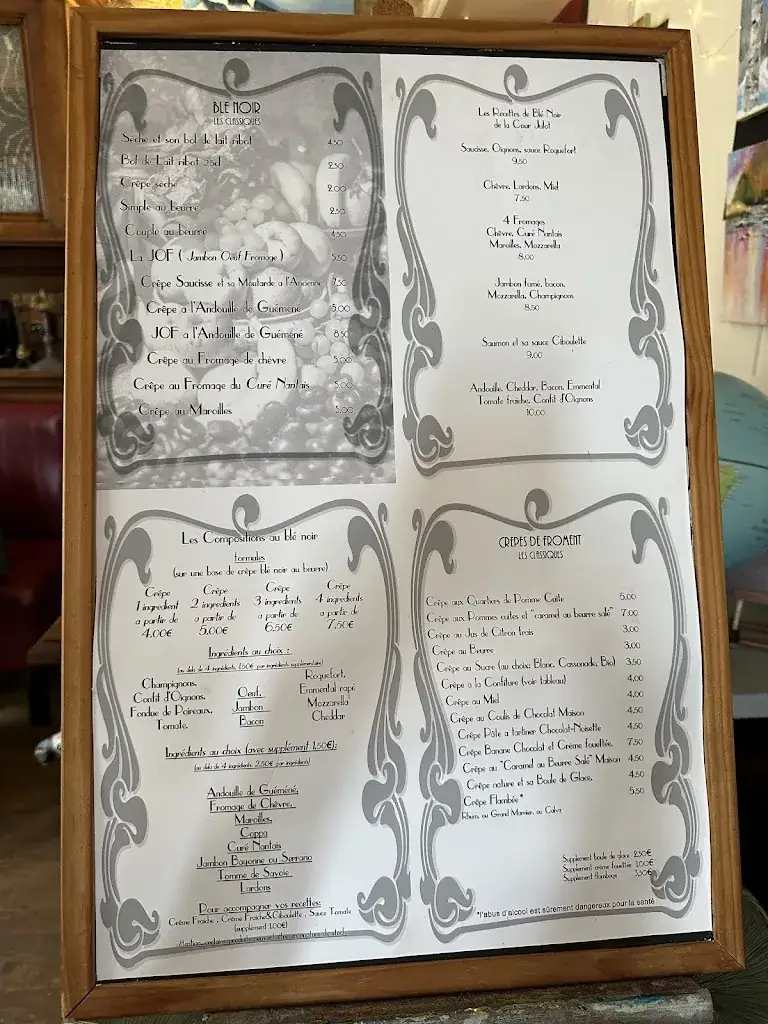 BLE NOIR
LES CLASSIQUES
Sèche et son bol de lait ribot 4.50
Bol de Lait ribot 25cl 2.50
Crêpe sèche 2.00
Simple au beurre 2.50
Couple au beurre 4.50
La JOF ( Jambon Oeuf Fromage ) 5.50
Crêpe Saucisse et sa Moutarde a l'Ancienne 7.50
Crêpe a l'Andouille de Guémené 5.00
JOF a l'Andouille de Guémené 8.50
Crêpe au Fromage de chèvre 5.00
Crêpe au Fromage du Curé Nantais 5.00
Crêpe au Maroilles 5.00
Les Recettes de Blé Noir
de la Cour Julot
Saucisse, Oignons, sauce Roquefort
9.50
Chèvre, Lardons, Miel
7.50
4 Fromages
Chèvre, Curé Nantais
Maroilles, Mozzarella
8.00
Jambon fumé, bacon,
Mozzarella, Champignons
8.50
Saumon et sa sauce Ciboulette
9.00
Andouille, Cheddar, Bacon, Emmental
Tomate fraiche, Confit d'Oignons
10.00
Les Compositions au blé noir
formules
(sur une base de crêpe blé noir au beurre)
Crêpe Crêpe Crêpe Crêpe
1 ingredient 2 ingredients 3 ingredients 4 ingredients
a partir de a partir de a partir de a partir de
4.00€ 5.00€ 6.50€ 7.50€
Ingrédients au choix :
(au delà de 4 ingrédients, 1.50€ par ingrédients supplémentaire)
Champignons,
Confit d'Oignons,
Fondue de Poireaux,
Tomate,
Oeuf,
Jambon
Bacon
Roquefort,
Emmental rapé
Mozzarella
Cheddar
Ingrédients au choix (avec supplément 1.50€):
(au delà de 4 ingrédients, 2.50€ par ingrédients)
Andouille de Guémené,
Fromage de Chèvre,
Maroilles,
Coppa
Curé Nantais
Jambon Bayonne ou Serrano
Tomme de Savoie
Lardons
Pour accompagner vos recettes:
Crème Fraiche , Crème Fraiche&Ciboulette , Sauce Tomate
(supplément 1.00€)
CREPES DE FROMENT
LES CLASSIQUES
Crêpe aux Quartiers de Pomme Cuite 5.00
Crêpe aux Pommes cuites et "caramel au beurre salé" 7.00
Crêpe au Jus de Citron frais 3.00
Crêpe au Beurre 3.00
Crêpe au Sucre (au choix: Blanc, Cassonade, Bio) 3.50
Crêpe a la Confiture (voir tableau) 4.00
Crêpe au Miel 4.00
Crêpe au Coulis de Chocolat Maison 4.50
Crêpe Pâte a tartiner Chocolat-Noisette 4.50
Crêpe Banane Chocolat et Crème fouettée, 7.50
Crêpe au "Caramel au Beurre Salé" Maison 4.50
Crêpe nature et sa Boule de Glace, 4.50
Crêpe Flambée* 5.50
Rhum, ou Grand Marnier, ou Calva
Supplement boule de glace 2.50€
Supplement crème fouettée 1.00€
Supplement flambage 3.50€
*l'abus d'alcool est sûrement dangereux pour la santé